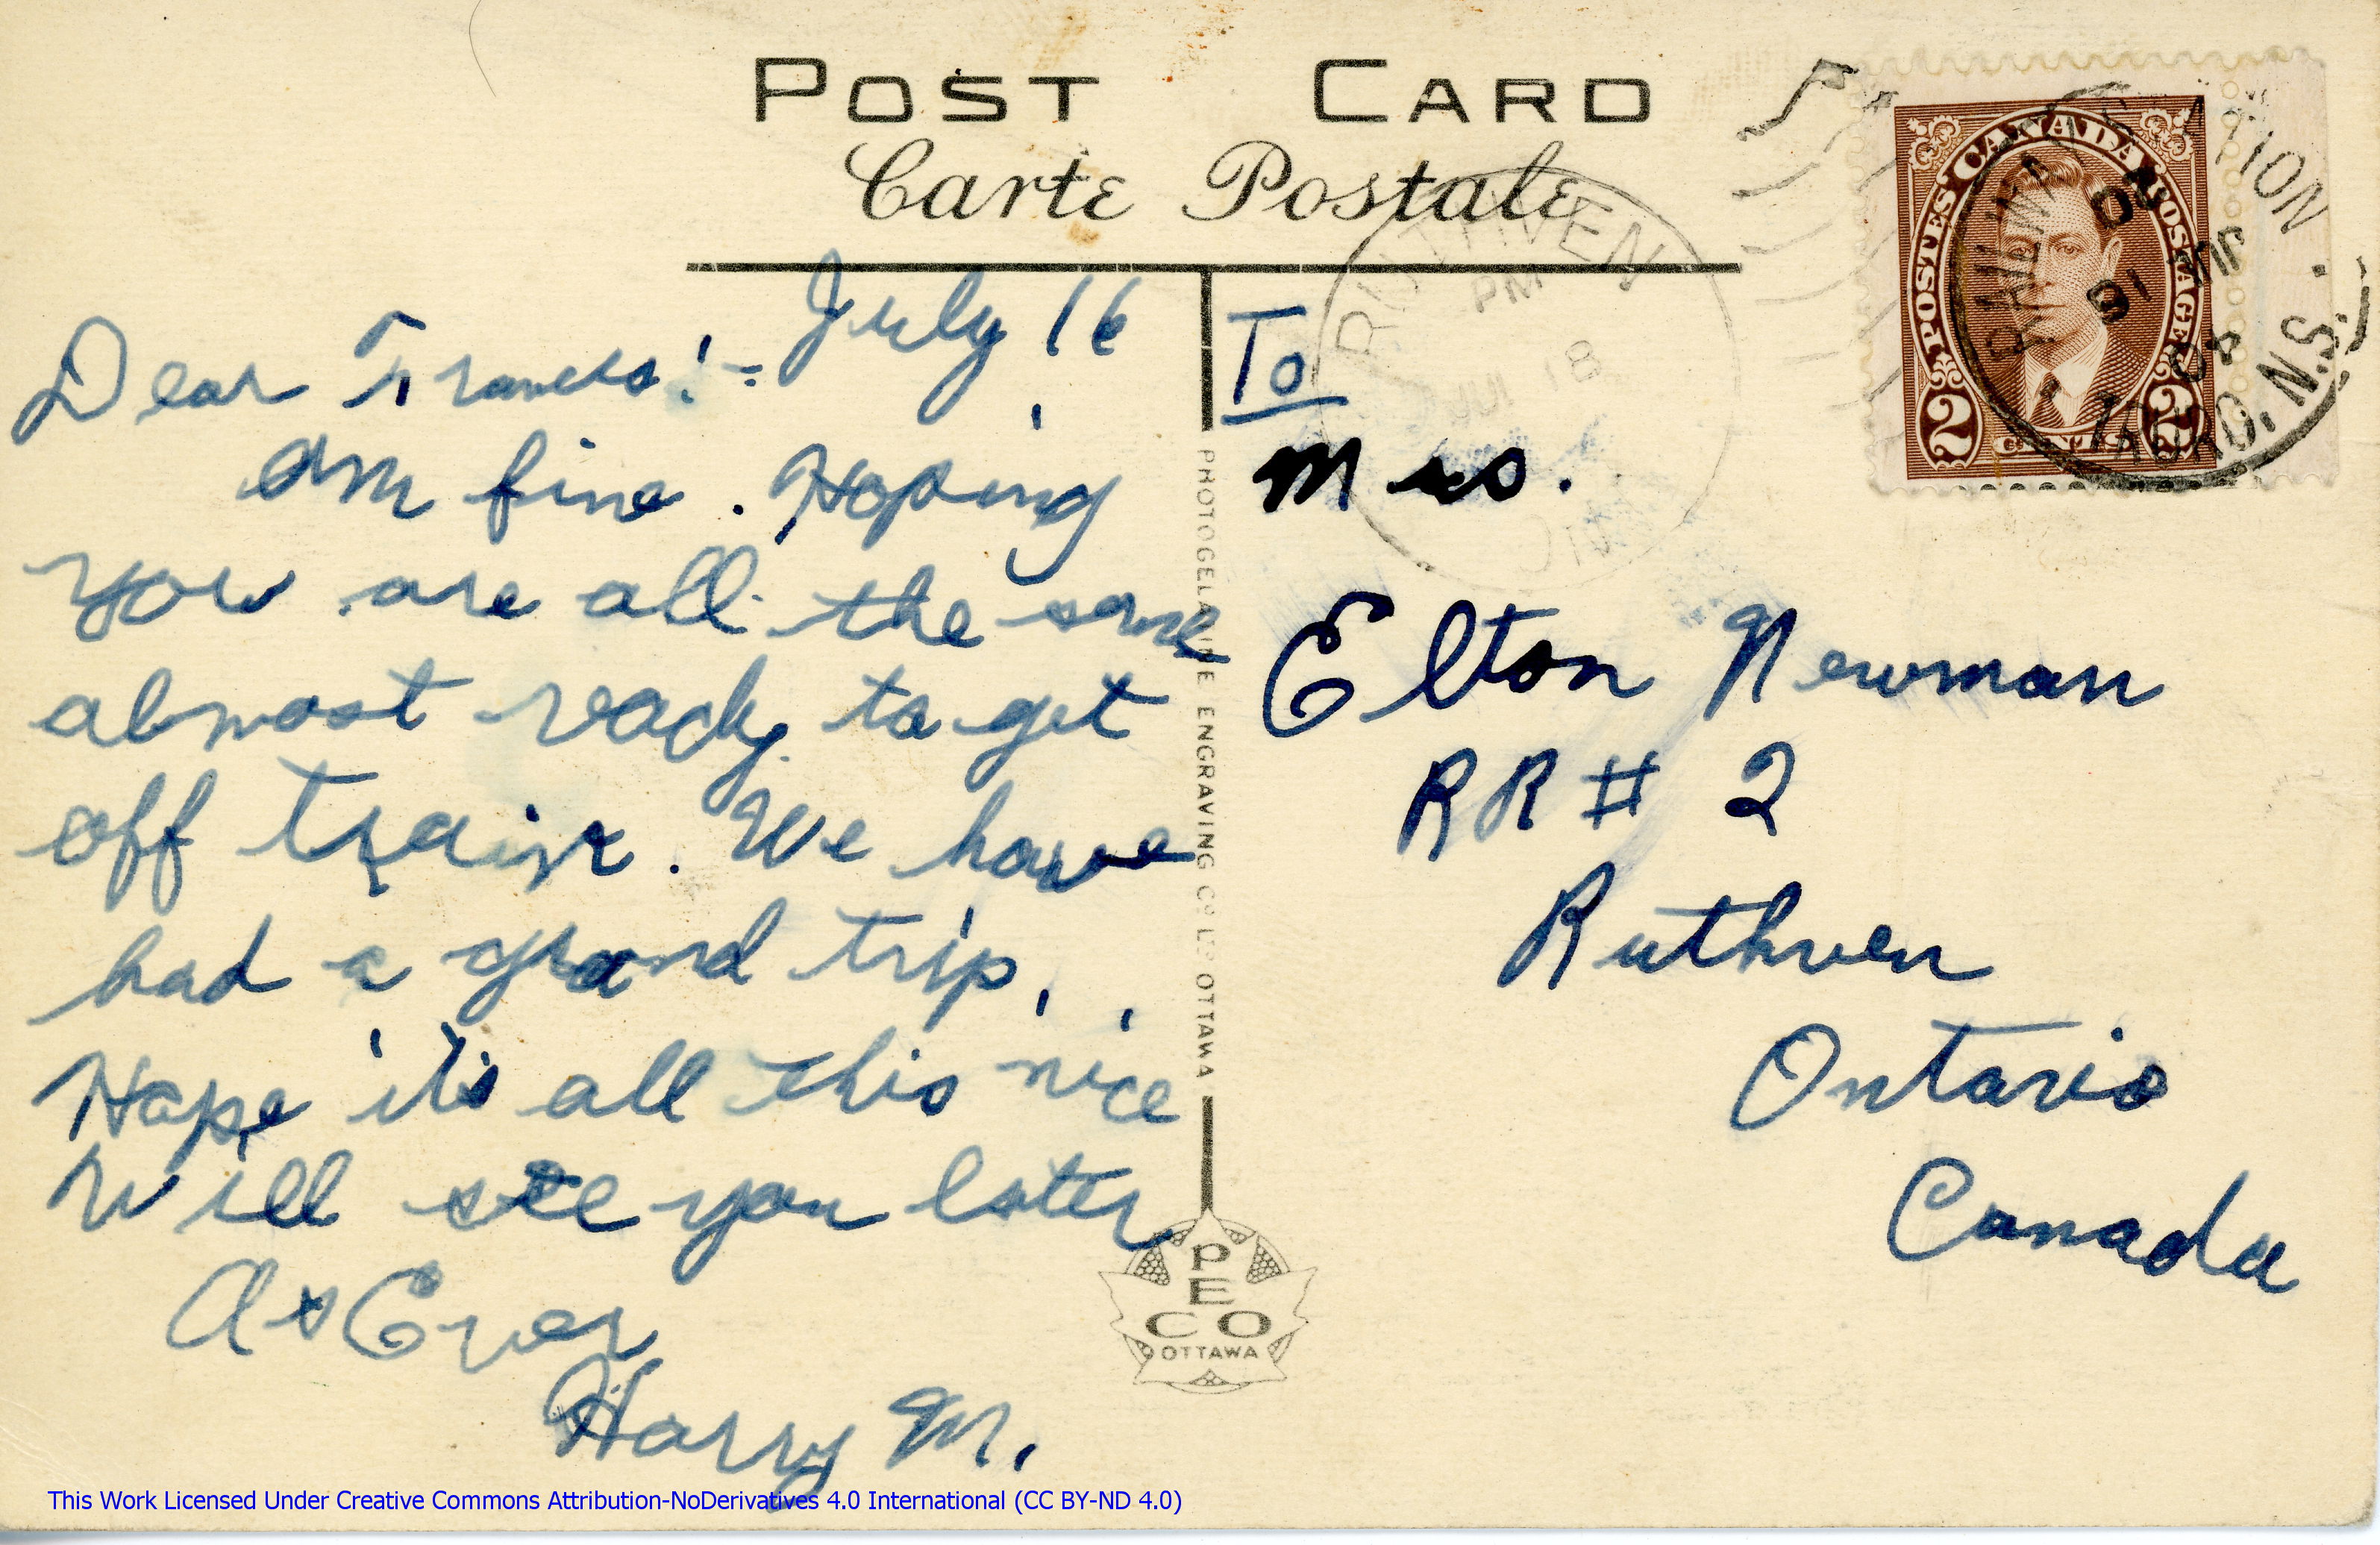 POST CARD
Carte Postale
July 16
Dear Frances! -
Am fine. Hoping
you are all the same
almost ready to get
off train. We have
had a grand trip.
Hope it's all this nice
Will see you later
As Ever
Harry M.
To
Mrs.
Elton Newman
RR # 2
Ruthven
Ontario
Canada
PHOTOGELATINE ENGRAVING CO. LTD OTTAWA
PECO
OTTAWA
RUTHVEN
PM
JUL 18
ONT
POSTES CANADA POSTAGE
2 CENTS 2
RAILWAY STATION
16
40
TRURO, N.S.
This Work Licensed Under Creative Commons Attribution-NoDerivatives 4.0 International (CC BY-ND 4.0)